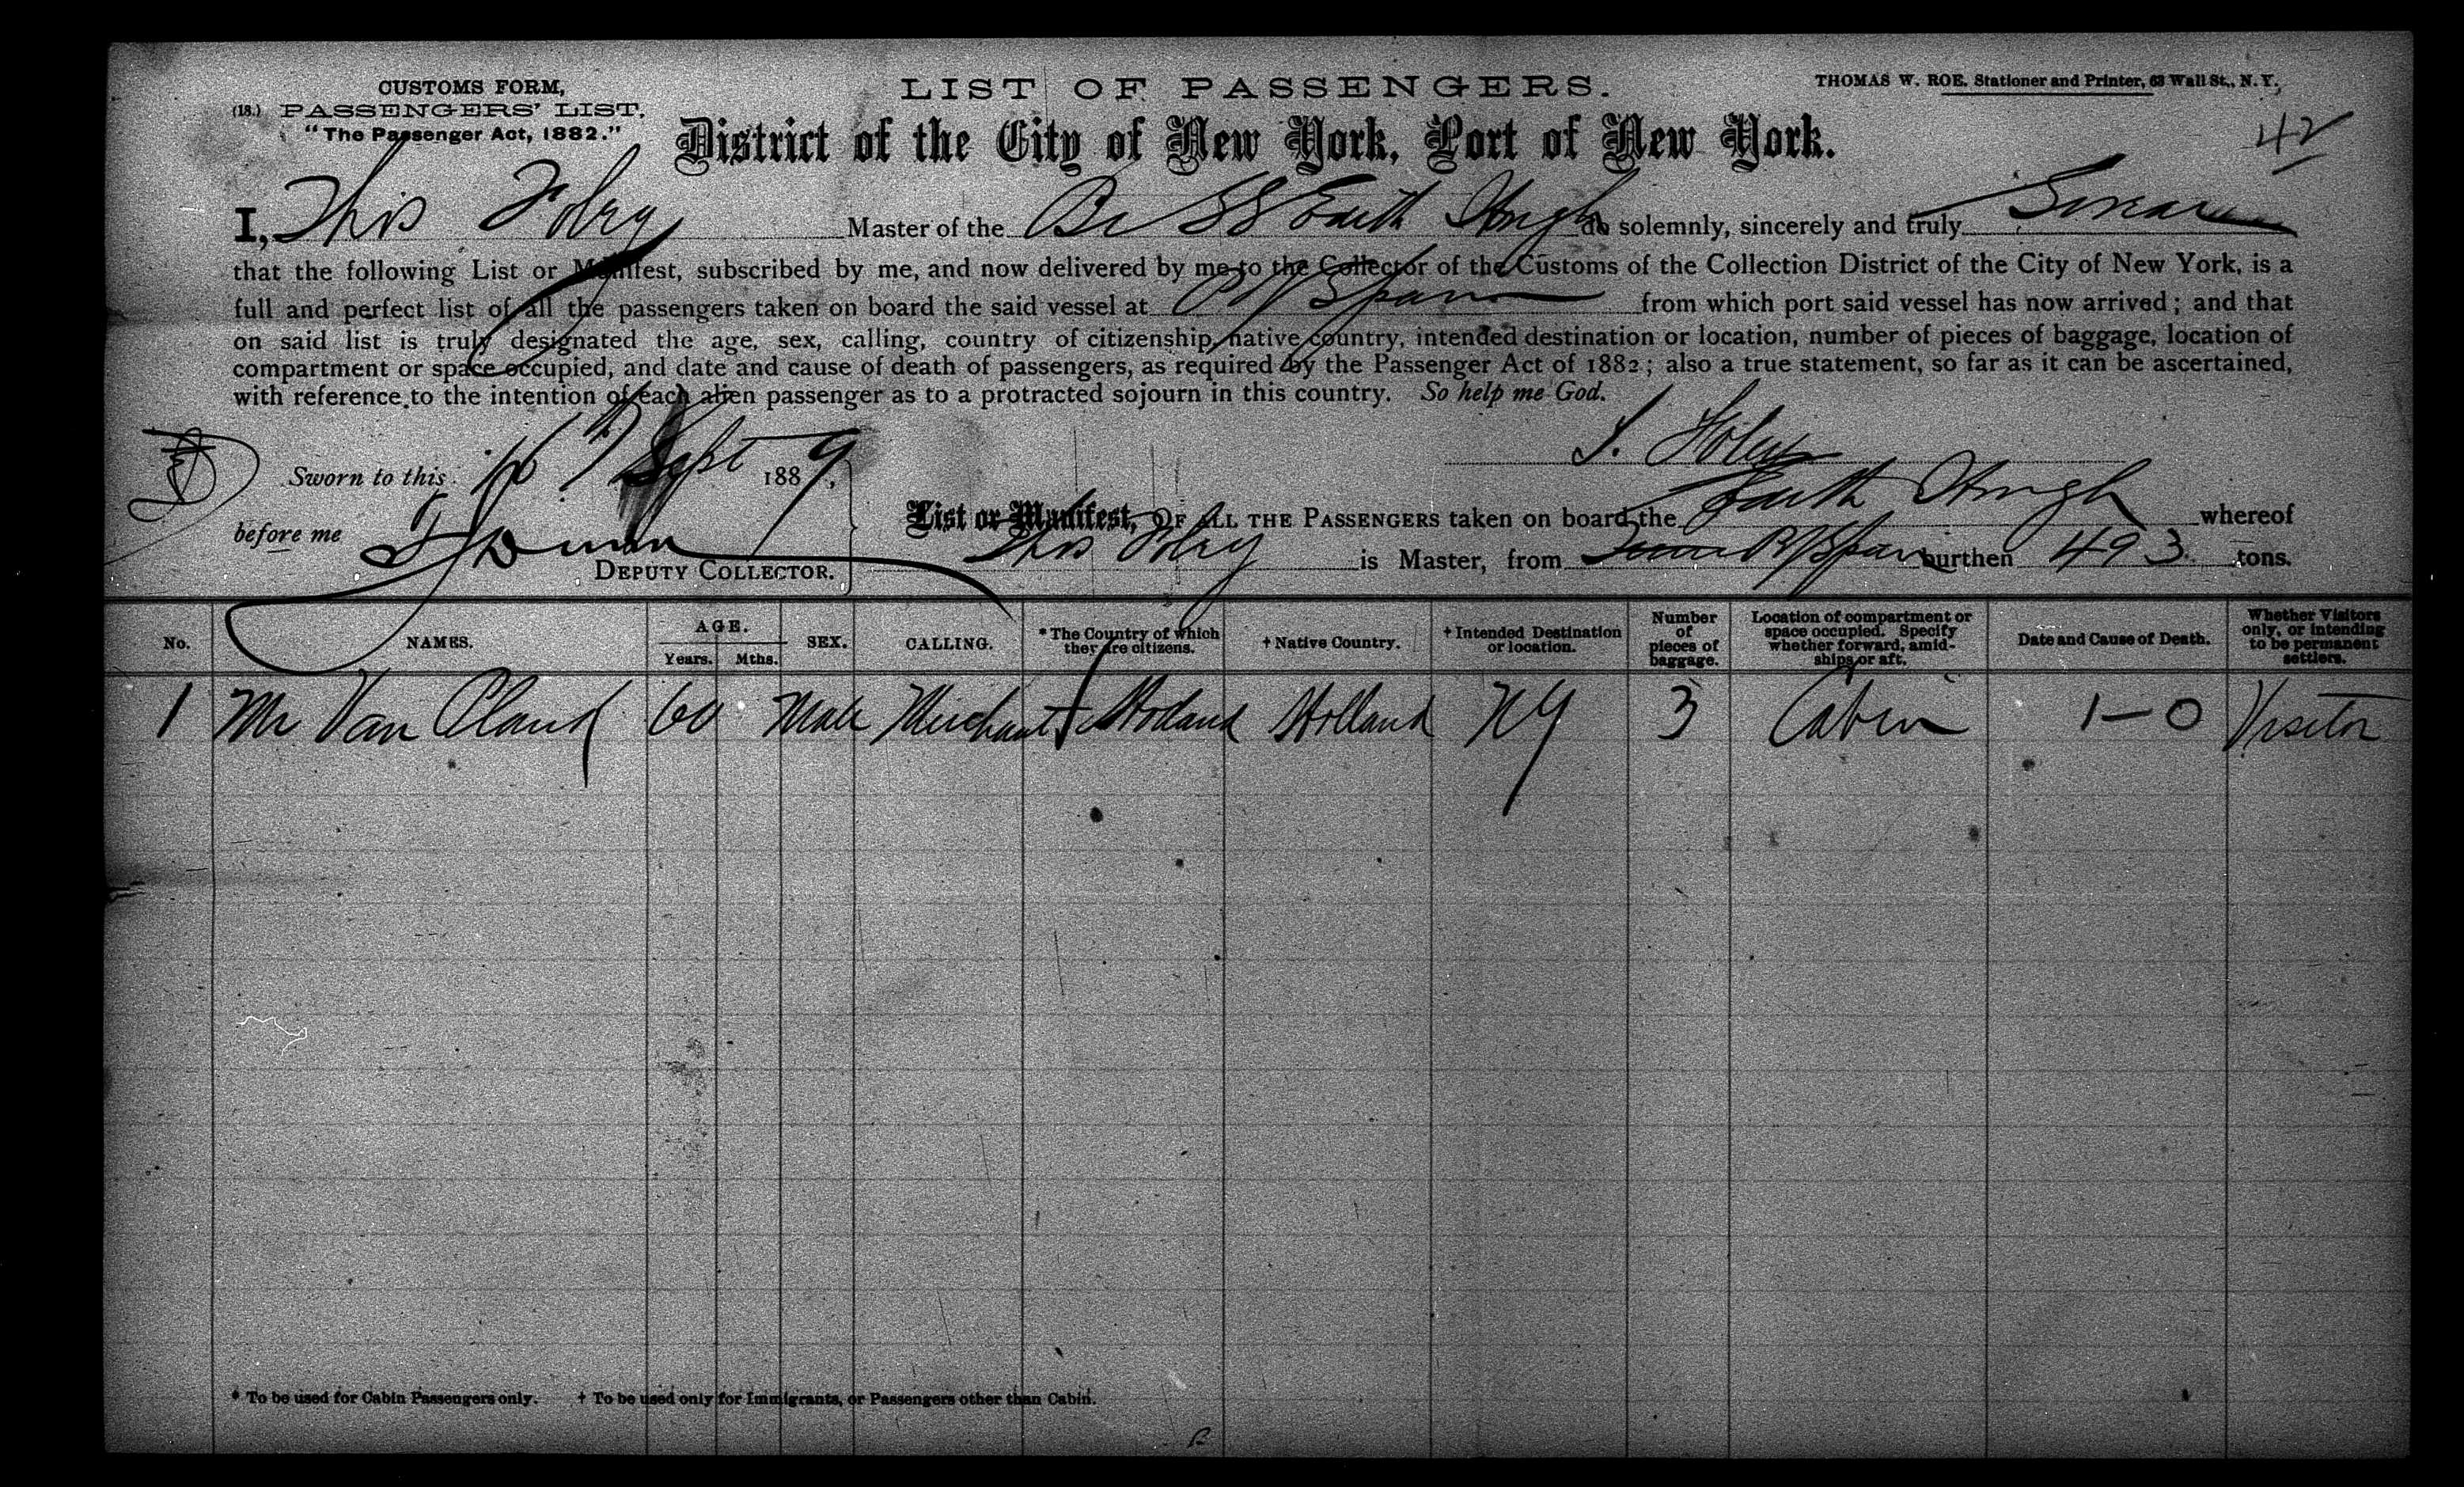 CUSTOMS FORM,
(18.) PASSENGERS' LIST.
"The Passenger Act, 1882."
LIST OF PASSENGERS.
THOMAS W. ROE. Stationer and Printer, 63 Wall St., N.Y.
District of the City of New York, Port of New York.
42
I, Thos Foley Master of the Br SS do solemnly, sincerely and truly Swear
that the following List or Manifest, subscribed by me, and now delivered by me to the Collector of the Customs of the Collection District of the City of New York, is a
full and perfect list of all the passengers taken on board the said vessel at P of Spain from which port said vessel has now arrived; and that
on said list is truly designated the age, sex, calling, country of citizenship, native country, intended destination or location, number of pieces of baggage, location of
compartment or space occupied, and date and cause of death of passengers, as required by the Passenger Act of 1882; also a true statement, so far as it can be ascertained,
with reference to the intention of each alien passenger as to a protracted sojourn in this country. So help me God.
T. Foley
Sworn to this 16 Sept 1889,
before me
DEPUTY COLLECTOR.
List or Manifest, OF ALL THE PASSENGERS taken on board the whereof
Thos Foley is Master, from P of Spain burthen 493 tons.
No. NAMES. AGE. Years. Mths. SEX. CALLING. *The Country of which they are citizens. †Native Country. †Intended Destination or location. Number of pieces of baggage. Location of compartment or space occupied. Specify whether forward, amidships or aft. Date and Cause of Death. Whether Visitors only, or intending to be permanent settlers.
1 Mr Van 60 Male Merchant Holland Holland NY 3 Cabin 1-0 Visitor
* To be used for Cabin Passengers only. † To be used only for Immigrants, or Passengers other than Cabin.